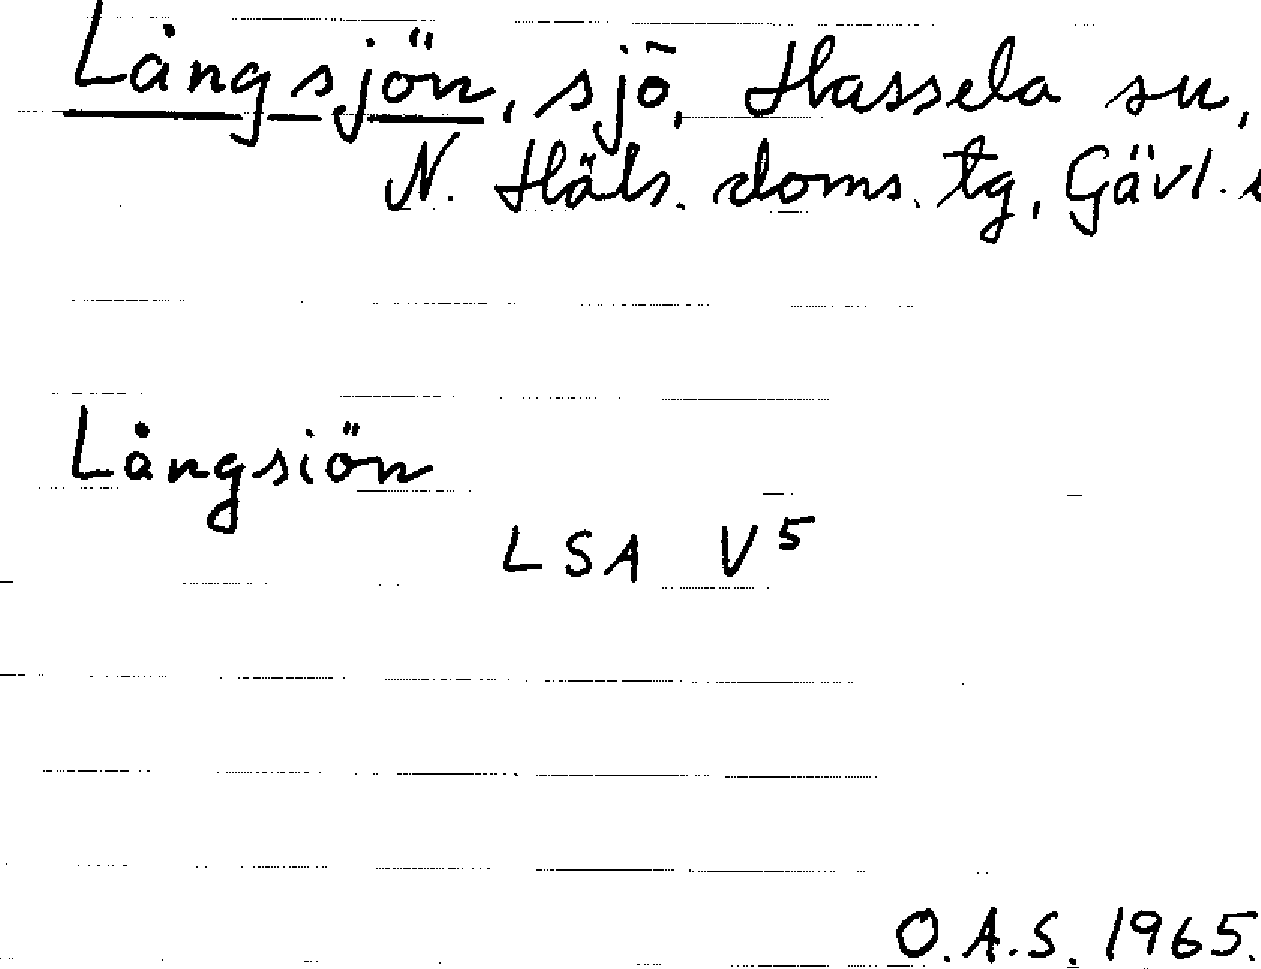 Långsjön, sjö, Hassela sn,
N. Häls. doms. tg, Gävl.
Långsiön
LSA V5
O.A.S. 1965.